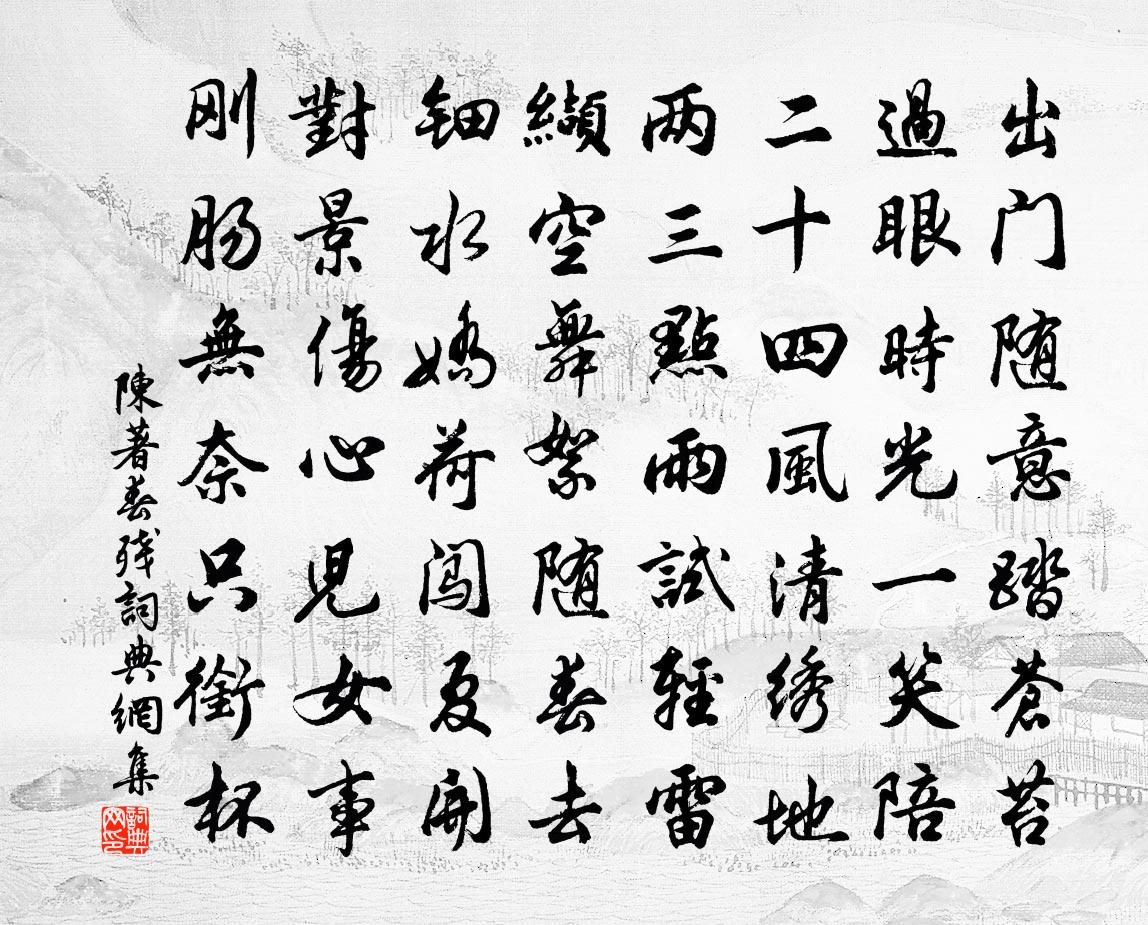 出门随意踏苍苔
過眼時光一笑陪
二十四風清绣地
两三點雨試輕雷
纈空舞絮随春去
钿水嬌荷闯夏開
對景傷心児女事
刚肠無奈只銜杯
陳著春残詞典網集
詞典网印